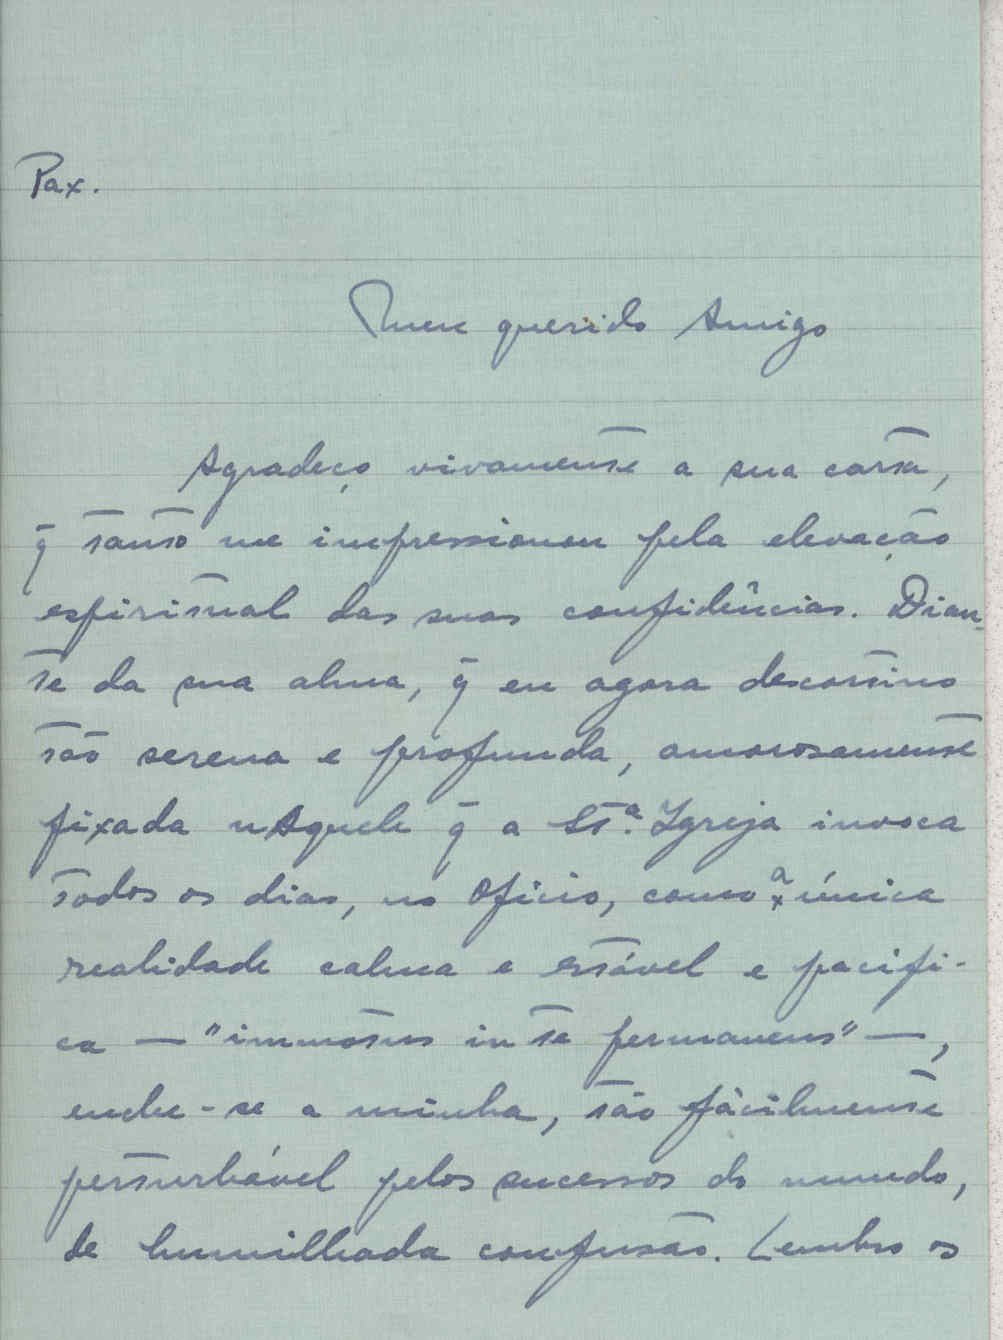 Pax.
Meu querido Amigo
Agradeço vivamente a sua carta,
q̄ tanto me impressionou pela elevação
espiritual das suas confidências. Dian-
te da sua alma, q̄ eu agora descortino
tão serena e profunda, amorosamente
fixada nAquele q̄ a Stª. Igreja invoca
todos os dias, no Ofício, como a única
realidade calma e estável e pacifi-
ca — "immotus in te permanens" —,
enche-se a minha, tão fàcilmente
perturbável pelos sucessos do mundo,
de humilhada confusão. Lembro os